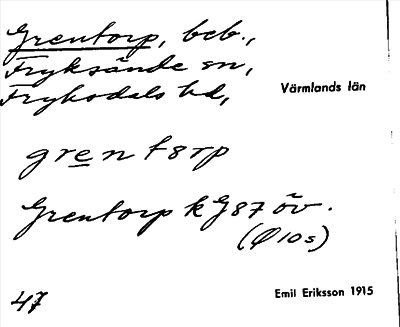 Grentorp, beb.,
Fryksände sn,
Fryksdals hd,
Värmlands län
gren t8rp
Grentorp k G87 öv.
(Ø10s)
47
Emil Eriksson 1915